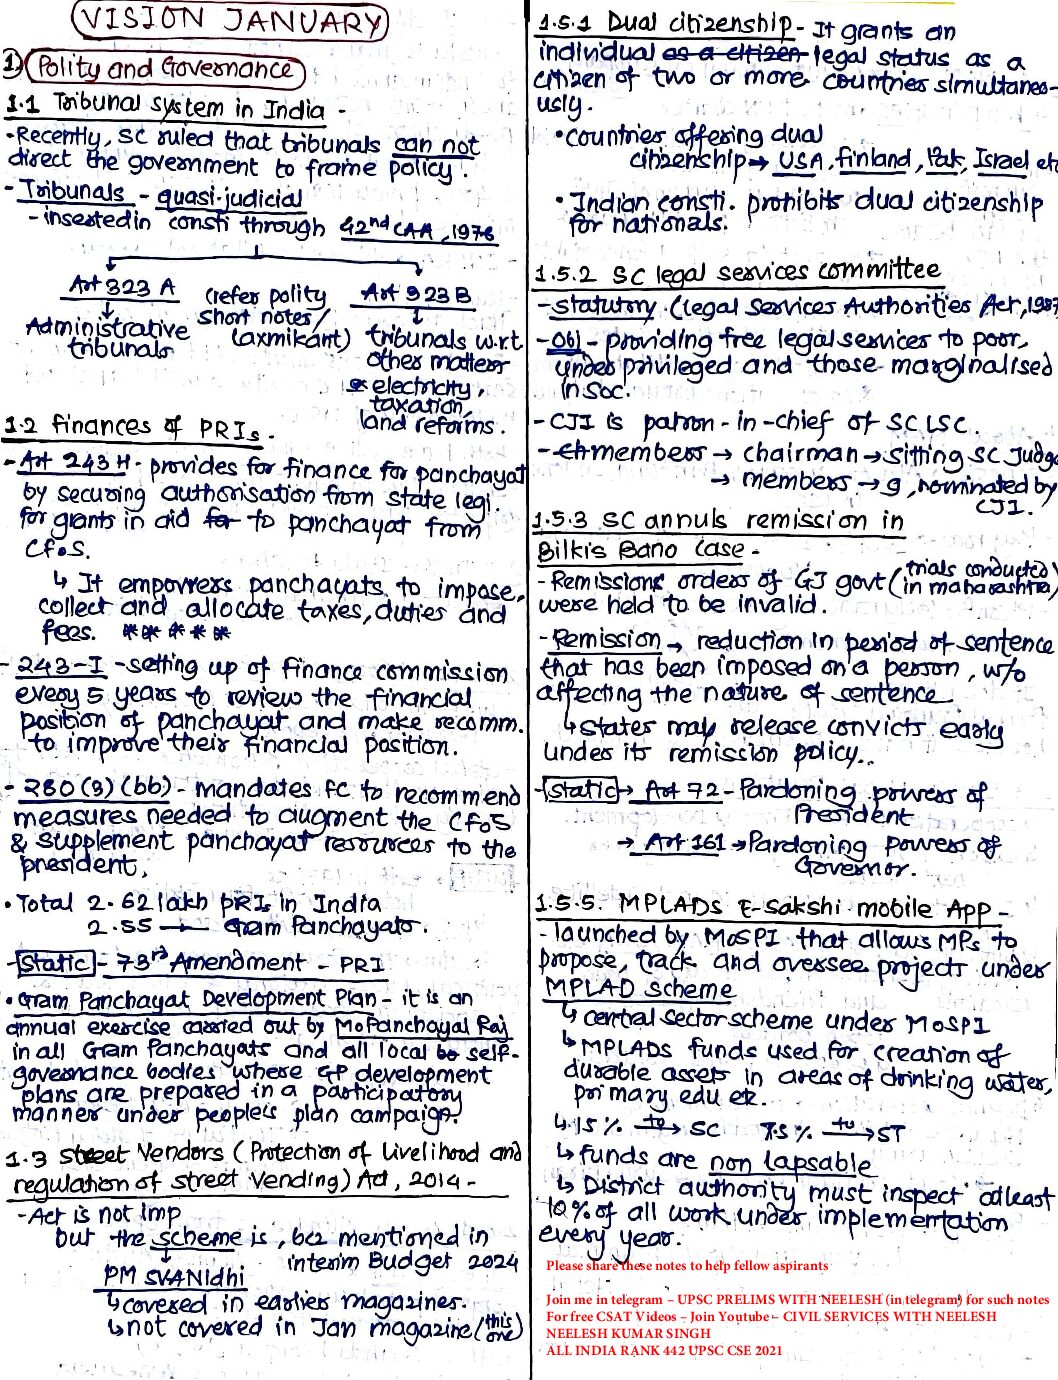 VISION JANUARY
1) Polity and Governance
1.1 Tribunal system in India -
• Recently, SC ruled that tribunals can not
direct the government to frame policy.
- Tribunals - quasi-judicial
- inserted in consti through 42nd CAA, 1976
Art 323 A
Administrative
tribunals
(refer polity
short notes/
laxmikant)
Art 323 B
tribunals w.r.t
other matters
electricity,
taxation,
land reforms.
1.2 Finances of PRIs -
- Art 243 H - provides for finance for panchayat
by securing authorisation from state legi.
for grants in aid for to panchayat from
CFoS.
↳ It empowers panchayats to impose,
collect and allocate taxes, duties and
fees. * * * * *
- 243-I - setting up of finance commission
every 5 years to review the financial
position of panchayat and make recomm.
to improve their financial position.
- 280 (3) (bb) - mandates FC to recommend
measures needed to augment the CFoS
& supplement panchayat resources to the
president,
• Total 2.62 lakh PRIs in India
2.55 → Gram Panchayats.
- Static - 73rd Amendment - PRI
• Gram Panchayat Development Plan - it is an
annual exercise carried out by MoPanchayat Raj
in all Gram Panchayats and all local bo self-
governance bodies where GP development
plans are prepared in a participatory
manner under people's plan campaign.
1.3 Street Vendors (Protection of Livelihood and
regulation of street Vending) Act, 2014 -
- Act is not Imp
but the scheme is, bcz mentioned in
interim Budget 2024
PM SVANidhi
↳ covered in earlier magazines.
↳ not covered in Jan magazine (this one)
1.5.1 Dual citizenship - It grants an
individual as a citizen legal status as a
citizen of two or more countries simultaneo-
usly.
• countries offering dual
citizenship → USA, Finland, Pak, Israel etc
• Indian consti. prohibits dual citizenship
for nationals.
1.5.2 SC legal services committee
- statutory (legal Services Authorities Act, 1987
- Obj - providing free legal services to poor,
under privileged and those marginalised
in soc.
- CJI is patron-in-chief of SCLSC.
- ch members → chairman → sitting SC Judge
→ members → 9, nominated by
CJI.
1.5.3 SC annuls remission in
Bilkis Bano Case -
- Remissions orders of GJ govt (trials conducted in maharashtra)
were held to be invalid.
- Remission → reduction in period of sentence
that has been imposed on a person, w/o
affecting the nature of sentence
↳ states may release convicts early
under its remission policy..
- Static → Art 72 - Pardoning powers of
President
→ Art 161 → Pardoning Powers of
Governor.
1.5.5. MPLADS E-Sakshi mobile App -
- launched by MoSPI that allows MPs to
propose, track and oversee projects under
MPLAD scheme
↳ central sector scheme under MoSPI
↳ MPLADS funds used for creation of
durable assets in areas of drinking water,
primary edu etc.
↳ 15% to → SC 7.5% to → ST
↳ funds are non lapsable
↳ District authority must inspect atleast
10% of all work under implementation
every year.
Please share these notes to help fellow aspirants
Join me in telegram – UPSC PRELIMS WITH NEELESH (in telegram) for such notes
For free CSAT Videos – Join Youtube – CIVIL SERVICES WITH NEELESH
NEELESH KUMAR SINGH
ALL INDIA RANK 442 UPSC CSE 2021